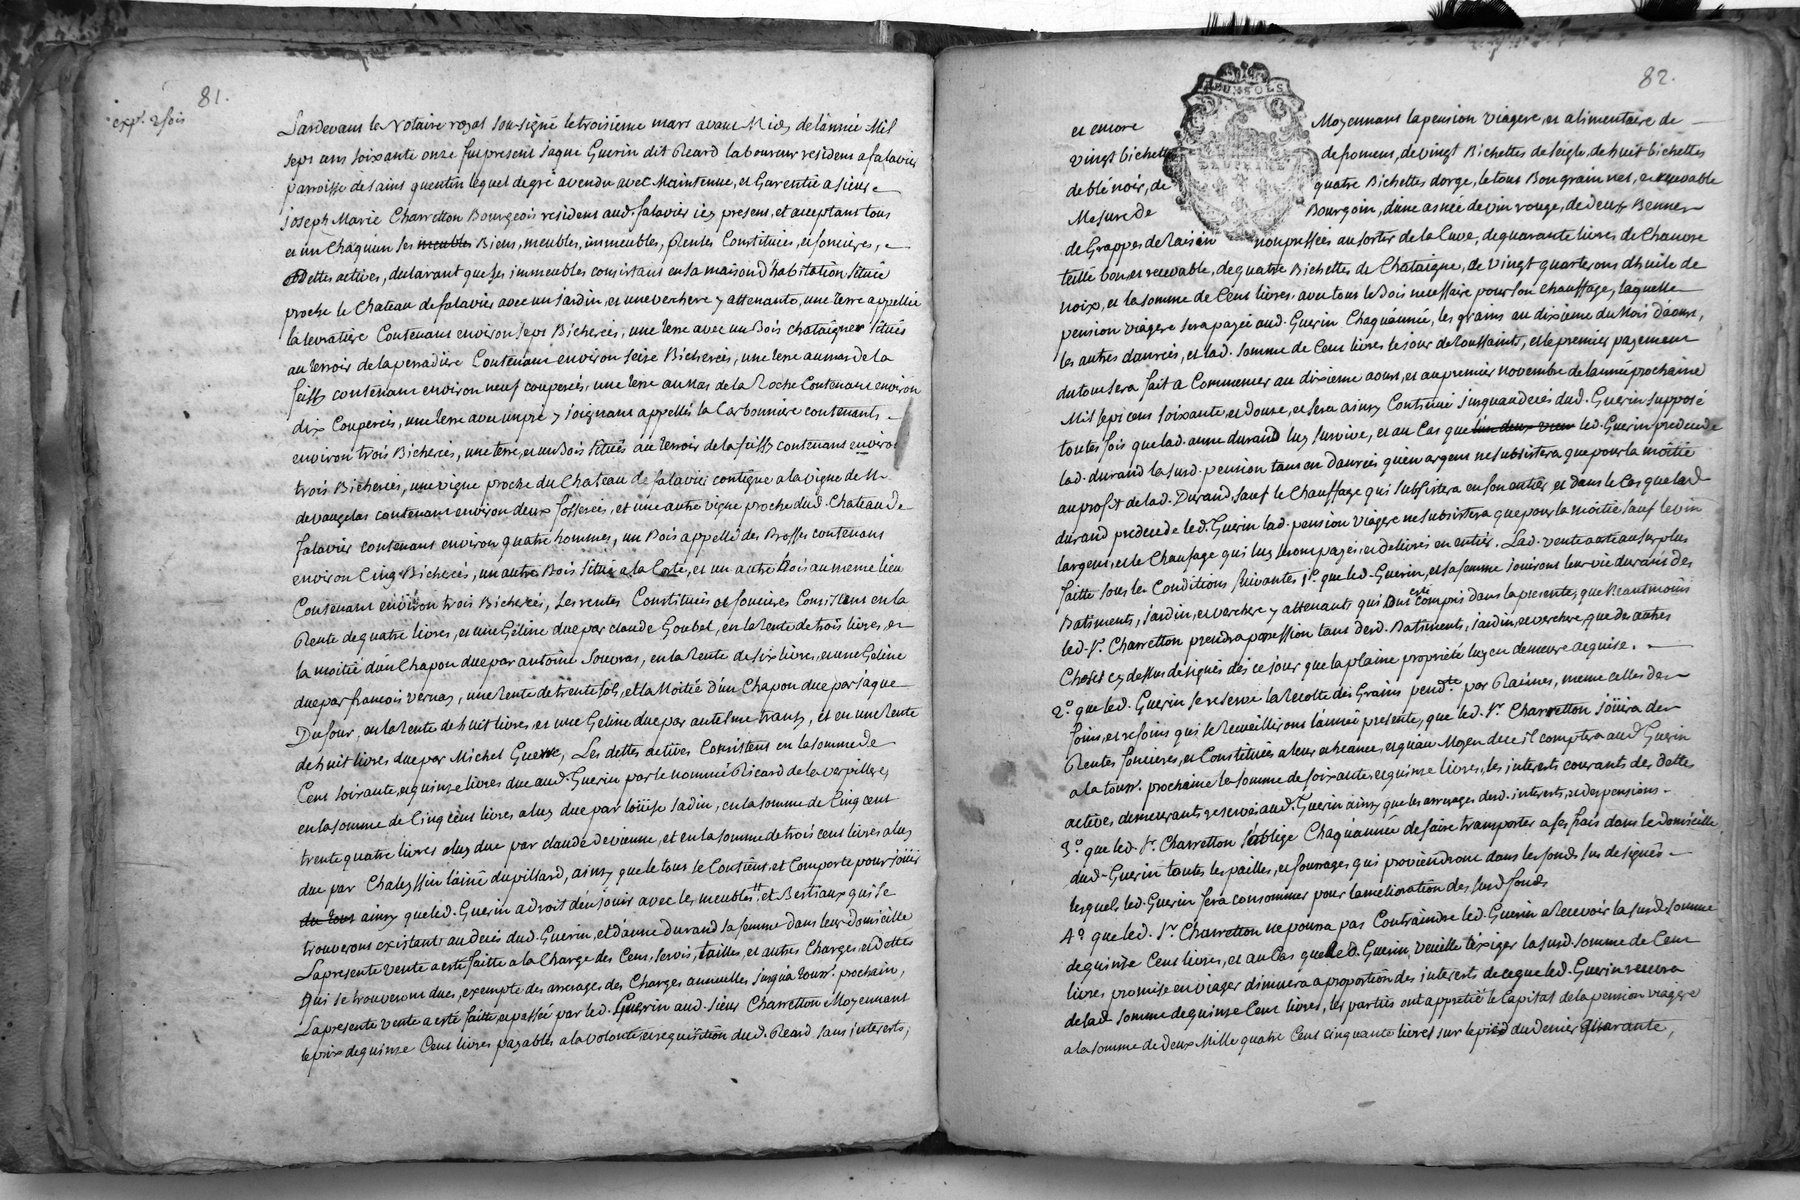 81.
exp.e 2 fois
Pardevant le Notaire royal Soussigné le troisieme mars avant Midy de l'année Mil
sept cens soixante onze fut present Jaque Guerin dit Reard laboureur residens a falavier
parroisse de saint quentin lequel de gré a vendu avec Maintenue, et Garentie a sieur
joseph Marie Charretton Bourgeois residens aud. falavier icy present, et acceptant tous
et un Chaquun ses meubles Biens, meubles, immeubles, Rentes Constituées, et foncières,
dettes actives, declarant que ses immeubles consistant en sa maison d'habitation Située
proche le Chateau de falavier avec un jardin, et une verchere y attenante, une terre appellée
la levratiere Contenant environ Sept Bicherées, une terre avec un Bois chataigner Situés
au terroir de la penadiere Contenant environ Seize Bicherées, une terre au mas de la
feisse contenant environ neuf couperées, une terre au Mas de la Roche Contenant environ
dix Couperées, une terre avec un pré y joignant appellés la Carbonniere contenants
environ trois Bicherées, une terre, et un Bois Situés au terroir de la feisse contenant environ
trois Bicherées, une vigne proche du Chateau de falavier contigue a la vigne de Mr
de vaugelas contenant environ deux fosserées, et une autre vigne proche dud. Chateau de
falavier contenant environ quatre hommes, un Bois appellé des Brosses contenant
environ Cinq Bicherées, un autre Bois Situé a la Coste, et un autre Bois au meme lieu
Contenant environ trois Bicherées, Les rentes Constituées et foncieres Consistent en la
Rente de quatre livres, et une Géline due par claude Goubet, en la Rente de trois livres, et
la moitié d'un Chapon due par antoine Souvras, en la Rente de six livres, et une Géline
due par francois vernay, une Rente de trente sols, et la Moitié d'un Chapon due par Jaque
Dufour, en la Rente de huit livres, et une Geline due par antelme frant, et en une Rente
de huit livres due par Michel Guerre, Les dettes actives Consistent en la somme de
Cent soixante, et quinze livres due aud. Guerin par le nommé Ricard de la verpilliere,
en la somme de Cinq cens livres a luy due par loüise Jadin, en la somme de Cinq cent
trente quatre livres a luy due par claude devienne, et en la somme de trois cent livres a luy
due par Chalessin l'ainé du pillard, ainsy que le tout se Contient, et Comporte pour joüir
du tout ainsy que led. Guerin a droit d'en jouir avec les meubles, et Bestiaux qui se
trouveront existants au decés dud. Guerin, et d'anne durand sa femme dans leur domicille
La presente vente a esté faitte a la Charge des Cens, servis, tailles, et autres Charges, et dettes
qui se trouveront dues, exempte des arrerages des Charges annuelles jusqu'a touss.t prochain,
La presente vente a esté faitte et passée par led. Guerin aud. sieur Charretton Moyennant
le prix de quinze Cent livres payables a la volonté, et requisition dud. Reard sans interests,
82.
DEUX SOLS
DAUPHINÉ
et encore Moyennant la pension viagere, et alimentaire de
vingt bichettes de froment, de vingt Bichettes de seigle, de huit bichettes
de blé noir, de quatre Bichettes d'orge, le tout Bon grain net, et recevable
Mesure de Bourgoin, d'une asnée de vin rouge, de deux Bennes
de Grappes de Raisin non pressées au sortir de la Cuve, de quarante livres de Chanvre
teillé bon, et recevable, de quatre Bichettes de Chataigne, de vingt quarterons d'huile de
noix, et la somme de Cent livres avec tout le Bois necessaire pour son chauffage, laquelle
pension viagere sera payée aud. Guerin Chaqu'année, les grains au dixieme du Mois d'aoust,
les autres danrées, et lad. somme de Cent livres le jour de toussaints, et le premier payement
du tout sera fait a Commencer au dixieme aoust, et au premier novembre de l'année prochaine
Mil sept cent soixante, et douze, et sera ainsy Continué jusqu'au decés dud. Guerin supposé
toutes fois que lad. anne durand luy survive, et au Cas que led. Guerin predecede
lad. durand la susd. pension tant en danrées qu'en argent ne subsistera que pour la moitié
au profit de lad. Durand, sauf le Chauffage qui subsistera en son entier, et dans le Cas que lad.
durand predecede led. Guerin lad. pension viagere ne subsistera que pour la moitié sauf le vin
l'argent, et le Chaufage qui luy seront payés, et delivrés en entier. Lad. vente a esté au surplus
faitte sous les Conditions suivantes 1.° que led. Guerin, et sa femme jouiront leur vie durant des
Batiments, jardin, et verchere y attenants qui sont compris dans la presente, que Neantmoins
led. Sr. Charretton prendra possession tant desd. Batiments, jardin, et verchere, que des autres
Choses cy dessus designées dés ce jour que la plaine proprieté luy en demeure acquise.
2.° que led. Guerin se reserve la Recolte des Grains pend.te par Racines, meme celles des
foins, et refoins qui se Recueilliront l'année presente, que led. Sr. Charretton joüira des
Rentes foncieres, et Constituées a leur echeance, et qu'au Moyen de ce il comptera aud. Guerin
a la touss.t prochaine la somme de soixante, et quinze livres, les interests courants des dettes
actives demeurants reservés aud. Guerin ainsy que les arrerages desd. interests, et des pensions.
3.° que led. Sr. Charretton s'oblige Chaqu'année de faire transporter a ses frais dans le domicille
dud. Guerin toutes les pailles, et fourrages, qui proviendront dans les fonds sus designés
lesquels led. Guerin fera consommer pour l'amelioration des susd. fonds
4.° que led. Sr. Charretton ne pourra pas Contraindre led. Guerin a Recevoir la susd. somme
de quinze Cent livres, et au Cas que led. Guerin, veuille l'exiger la susd. somme de Cent
livres promise en viager diminuera a proportion des interests de ce que led. Guerin recevra
de lad. somme de quinze Cent livres, les parties ont apprecié le Capital de la pension viagere
a la somme de deux Mille quatre Cent cinquante livres sur le pied du denier quarante,